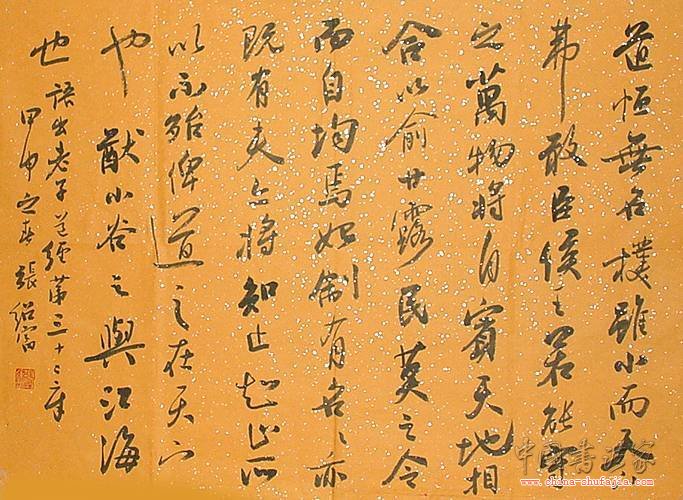 道恒無名樸雖小而天地
弗敢臣侯王若能守
之萬物將自賓天地相
合以俞甘露民莫之令
而自均焉始制有名々亦
既有夫亦將知止知止所
以不殆俾道之在天下
也猷小谷之與江海
也 語出老子道經第三十二章
甲申之春 張紹富
中国书法家
www.china-shufajia.com